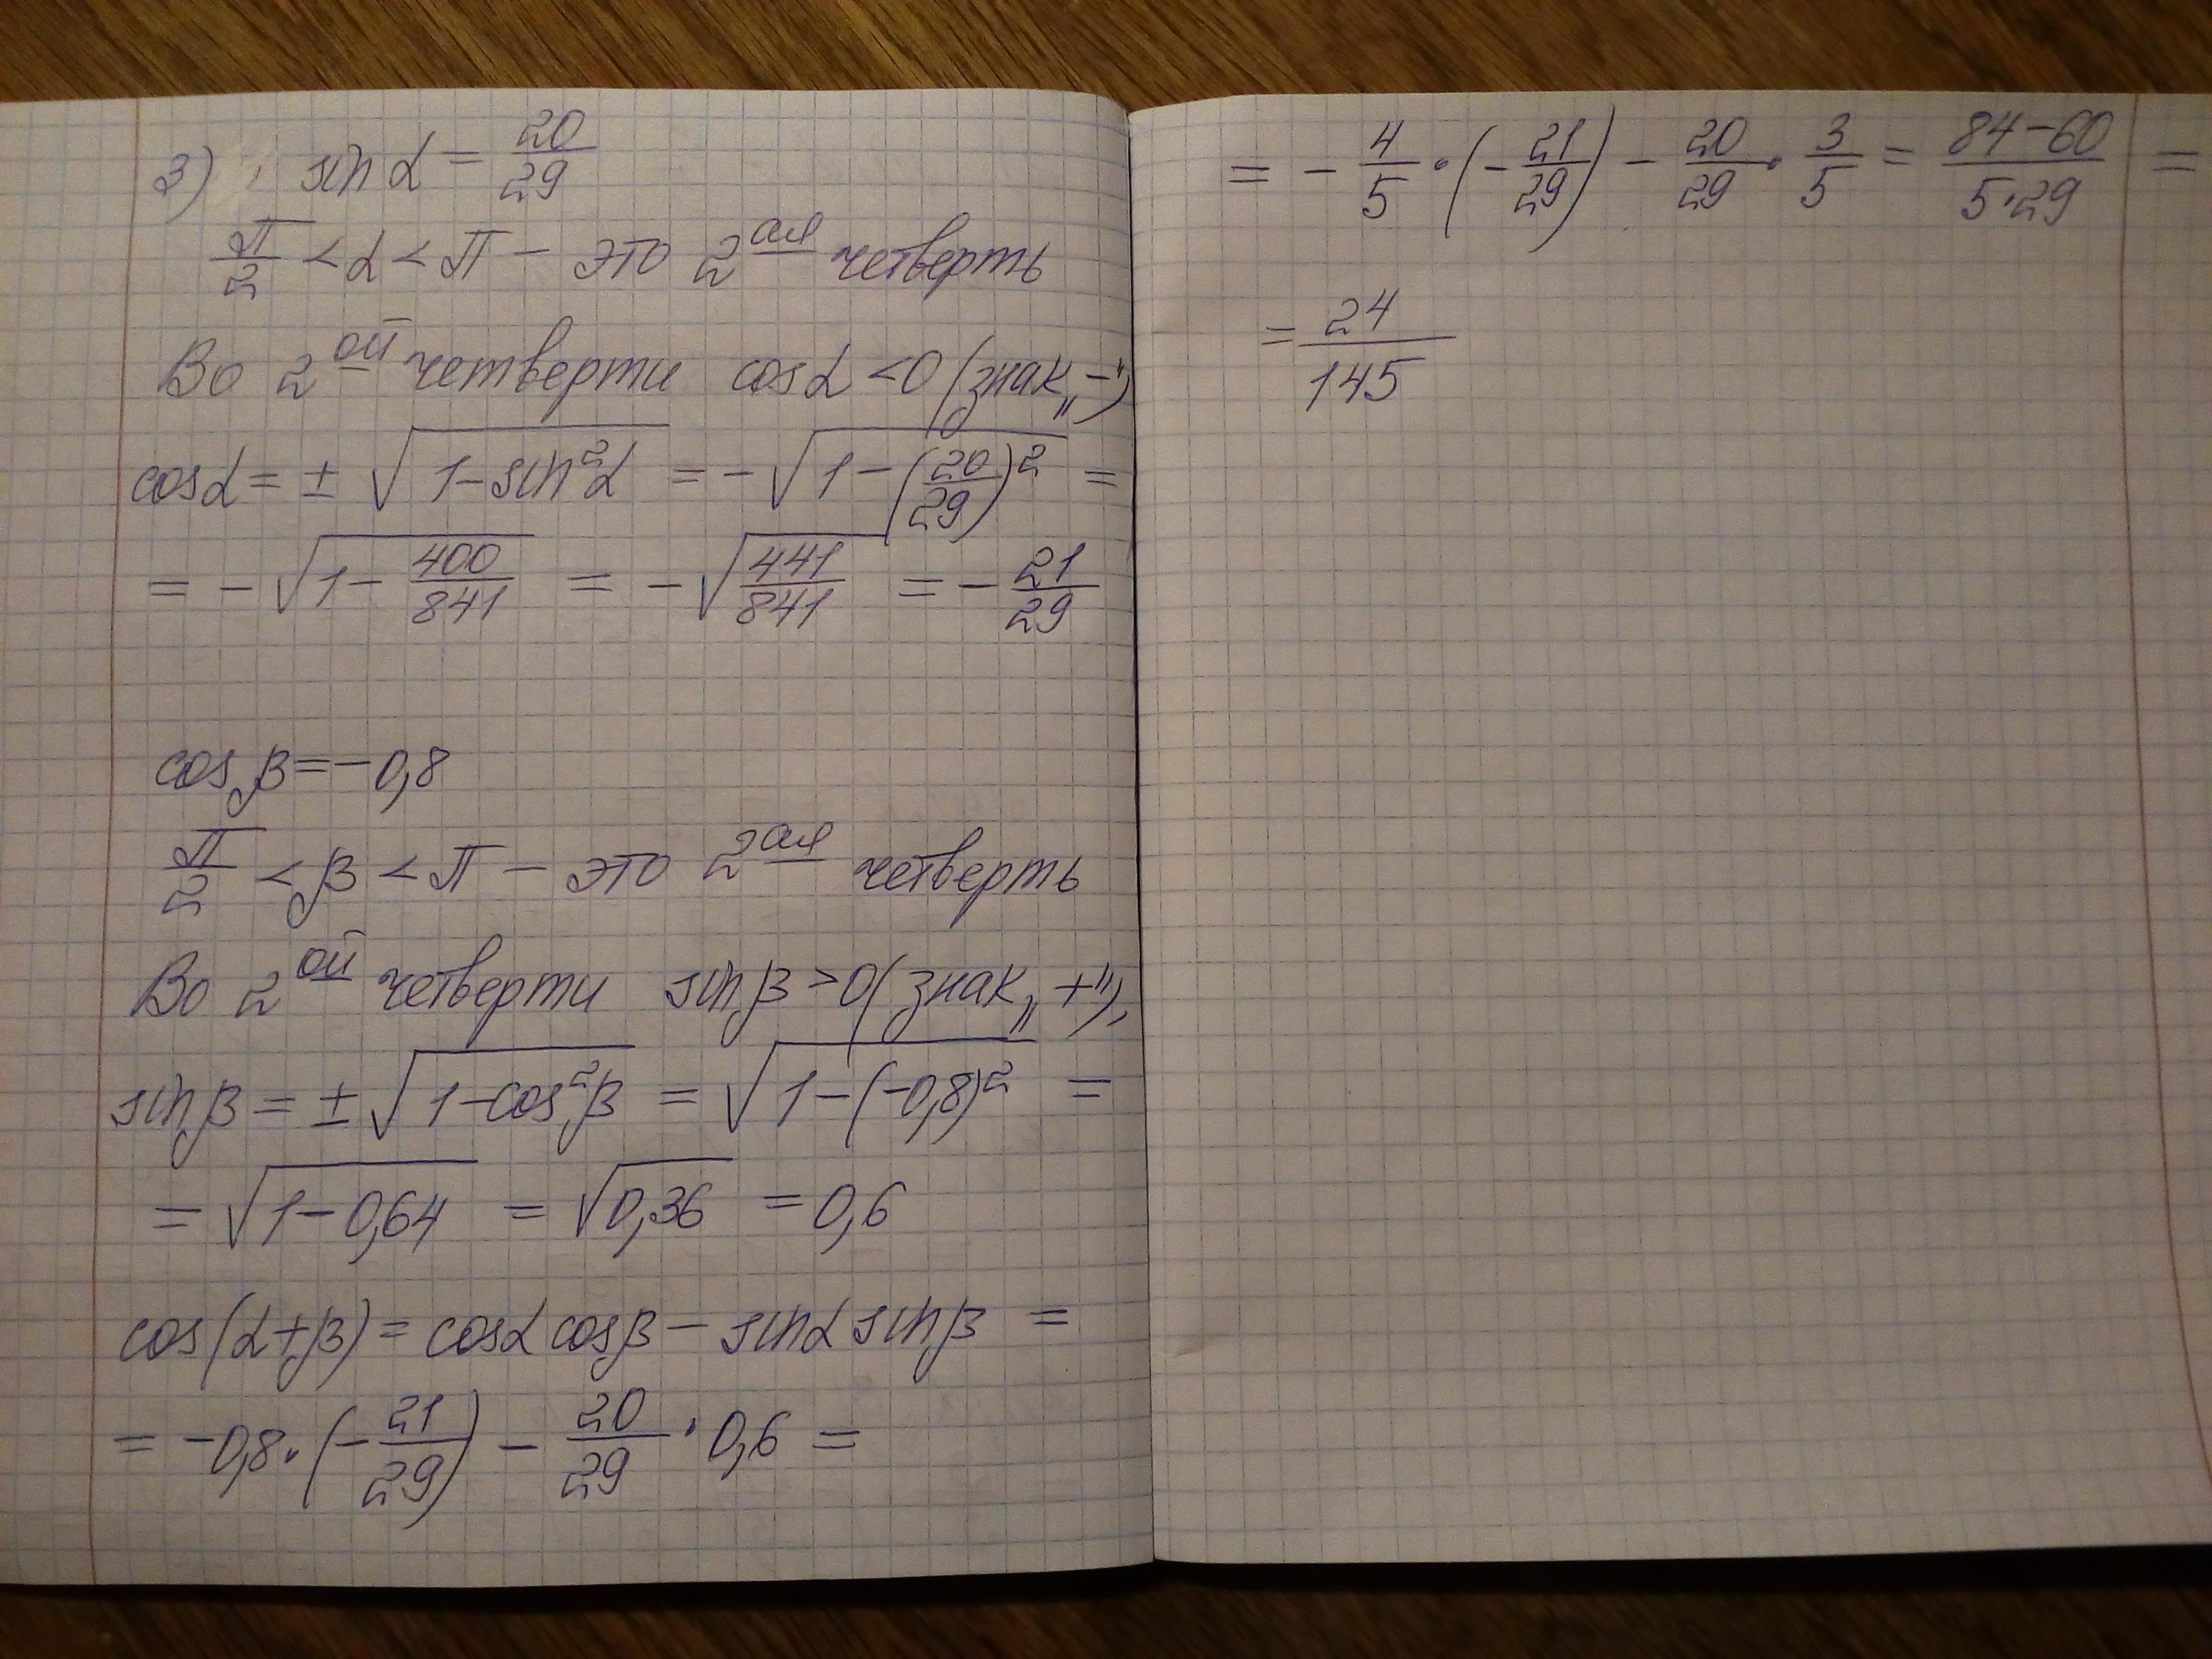 3) sin α = 20/29
π/2 < α < π – это 2ая четверть
Во 2ой четверти cos α < 0 (знак „–")
cos α = ± √(1 – sin²α) = – √(1 – (20/29)²) =
= – √(1 – 400/841) = – √(441/841) = – 21/29
cos β = – 0,8
π/2 < β < π – это 2ая четверть
Во 2ой четверти sin β > 0 (знак „+"),
sin β = ± √(1 – cos²β) = √(1 – (–0,8)²) =
= √(1 – 0,64) = √0,36 = 0,6
cos(α + β) = cos α cos β – sin α sin β =
= –0,8 · (– 21/29) – 20/29 · 0,6 =
= – 4/5 · (– 21/29) – 20/29 · 3/5 = (84 – 60)/(5 · 29) =
= 24/145